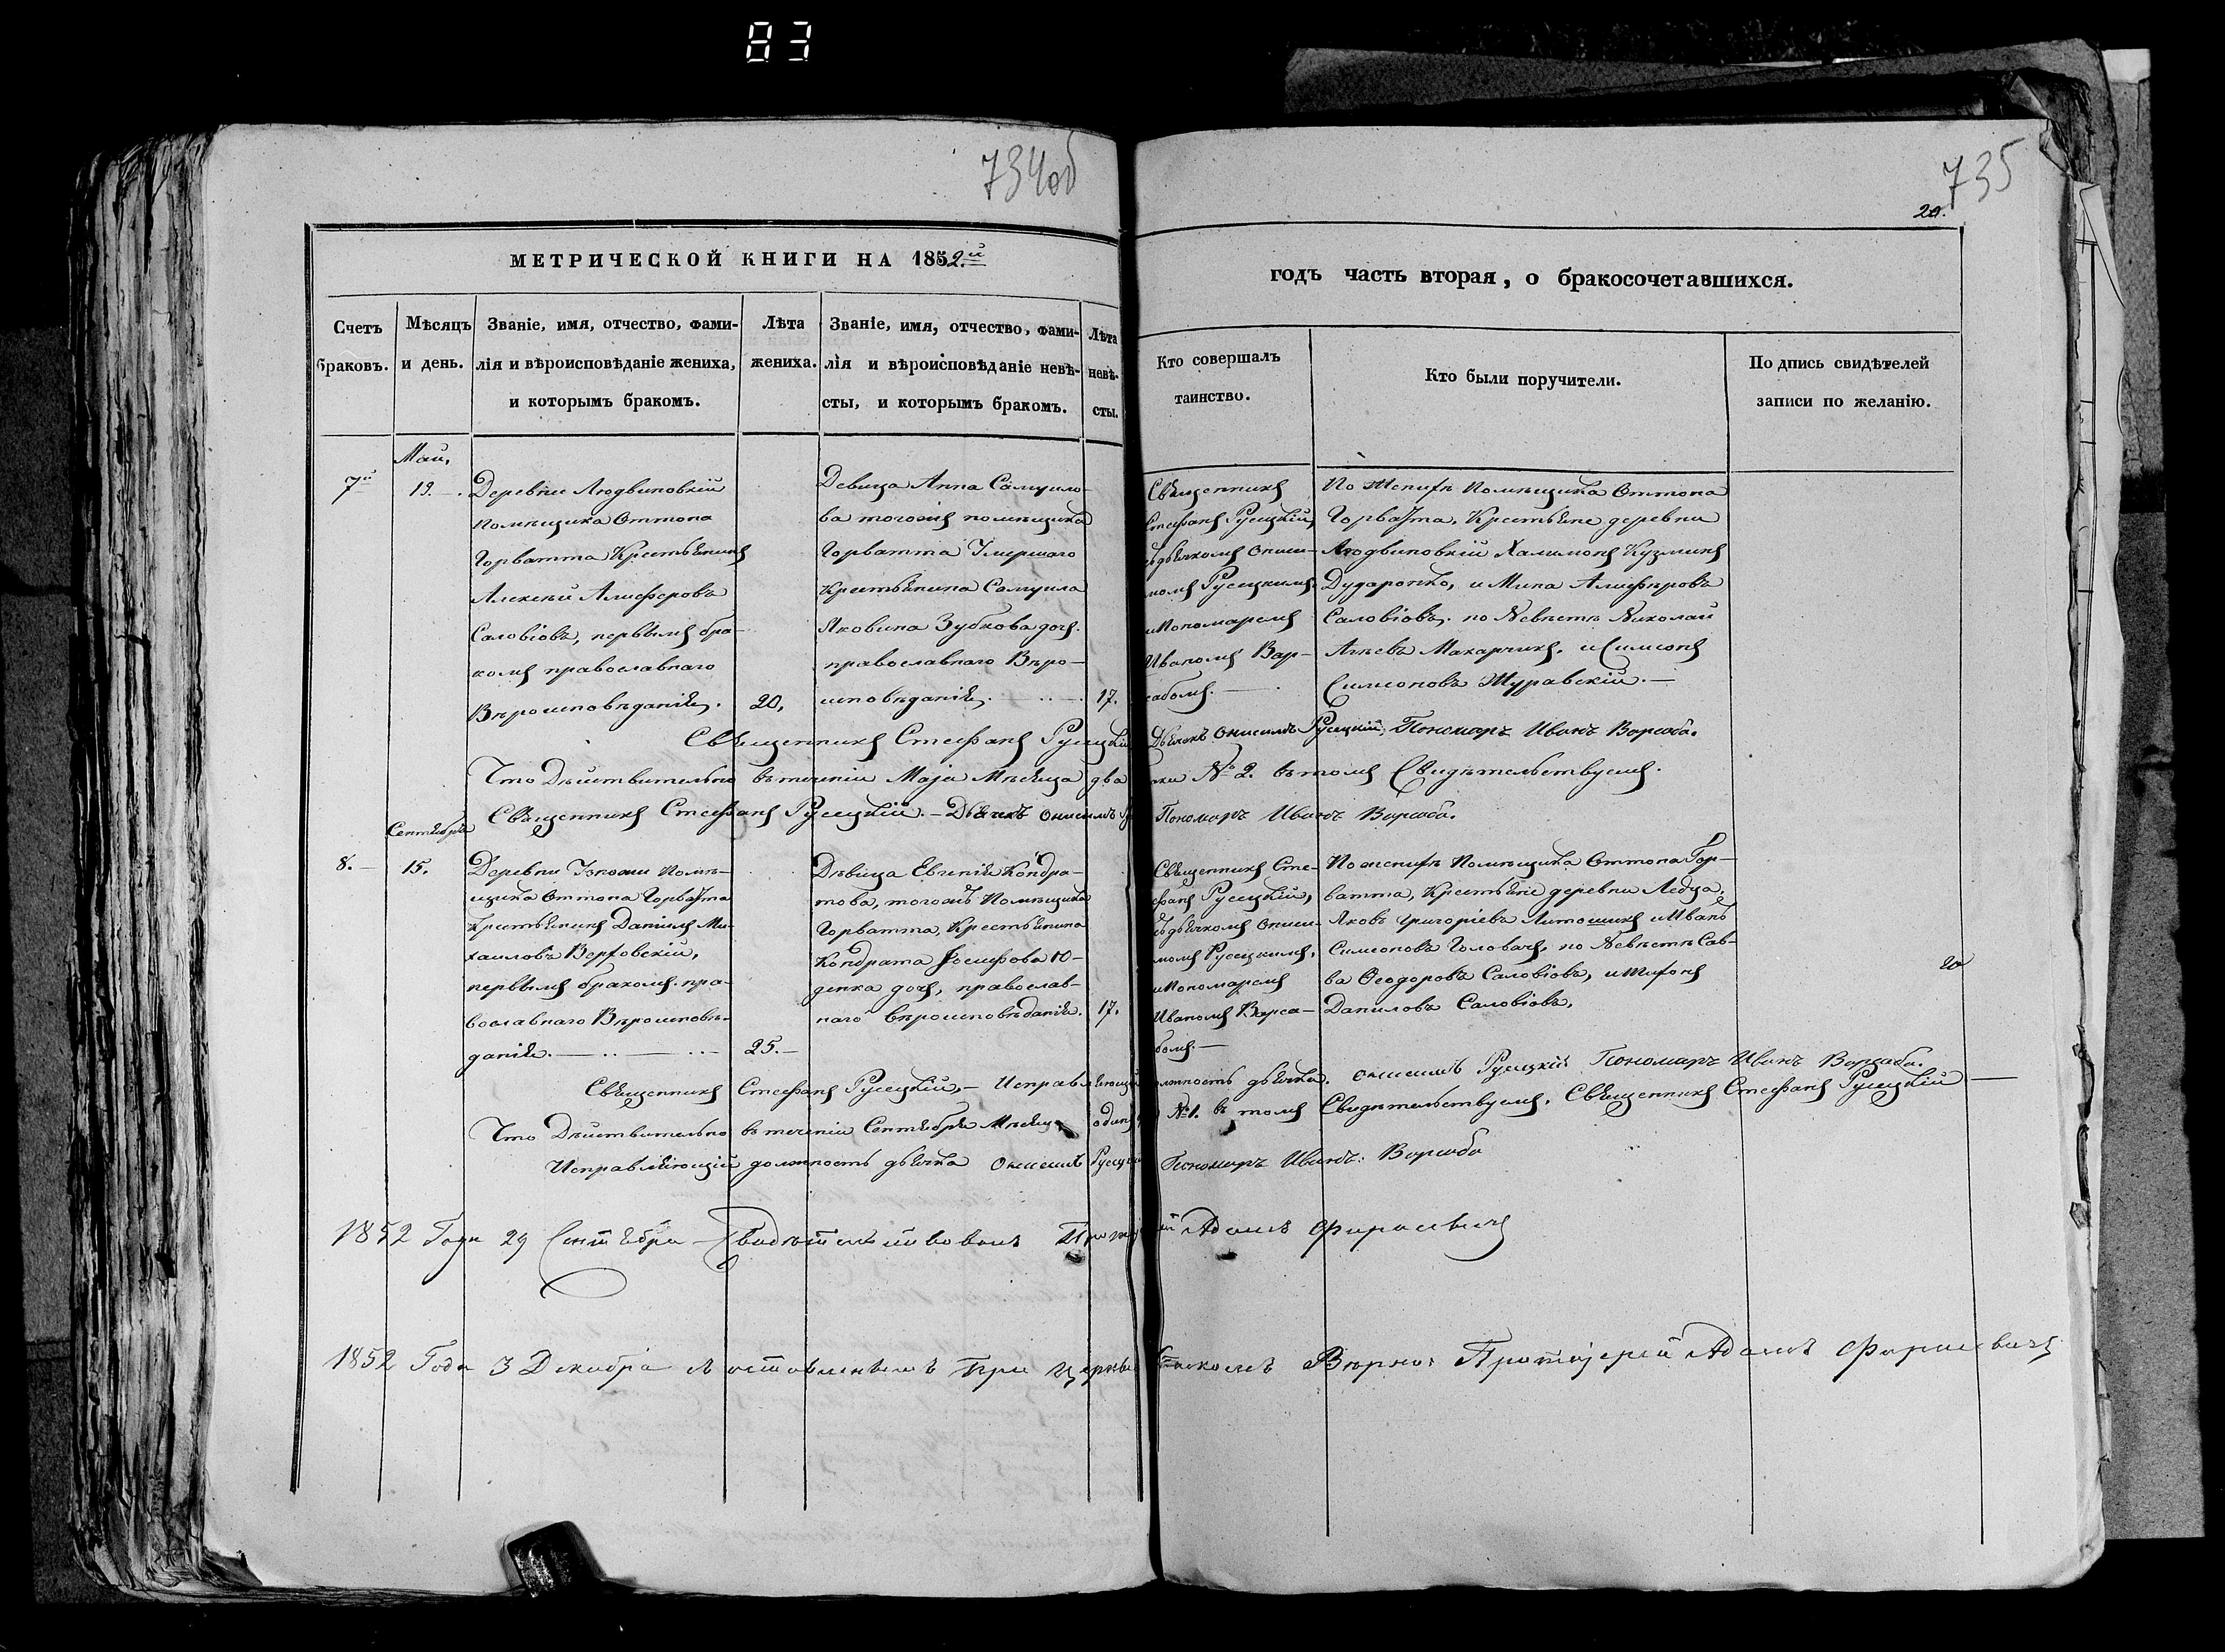 83
734об
735
20.
МЕТРИЧЕСКОЙ КНИГИ НА 1852.й
годъ часть вторая, о бракосочетавшихся.
Счетъ браковъ.
Мѣсяцъ и день.
Званіе, имя, отчество, фами-
лія и вѣроисповѣданіе жениха,
и которымъ бракомъ.
Лѣта жениха.
Званіе, имя, отчество, фами-
лія и вѣроисповѣданіе невѣ-
сты, и которымъ бракомъ.
Лѣта невѣ-
сты.
Кто совершалъ
таинство.
Кто были поручители.
По дпись свидѣтелей
записи по желанію.
Маи,
7й
19.
Деревни Людвиновкіи
помѣщика Оттона
Горватта Крестьянинъ
Алексѣй Алисферовъ
Саловіовъ, первымъ бра-
комъ православнаго
Вѣроисповѣданія.
20,
Девица Анна Самуило-
ва тогожъ помѣщика
Горватта Умершаго
Крестьянина Самуила
Яковина Зубкова дочь.
православнаго Вѣро-
исповѣданія.
17.
Священникъ
Стефанъ Русецкій,
съ дьячкомъ Ониси-
момъ Русецкимъ,
и Пономаремъ
Иваномъ Вар-
сабомъ.
По Женихѣ Помѣщика Оттона
Горватта, Крестьяне деревни
Людвиновкіи Халимонъ Кузминъ
Дударонко, и Мина Алисферовъ
Саловіовъ. по Невѣстѣ Николай
Агѣевъ Макарчикъ, и Симеонъ
Симеоновъ Журавскій.
Священникъ Стефанъ Русецкій Дьячекъ Онисимъ Русецкій, Пономаръ Иванъ Варсоба.
Что Дѣйствительно въ теченіи Маія Мѣсяца два
№ 2. въ томъ Свидѣтельствуемъ.
Священникъ Стефанъ Русецкій. – Дьячекъ Онисимъ
Пономаръ Иванъ Варсоба.
Сентября
8.
15.
Деревни Помѣ-
щика Оттона Горватта
Крестьянинъ Даніилъ Ми-
хаиловъ Верховскій,
первымъ бракомъ пра-
вославнаго Вѣроисповѣ-
данія.
25.
Дѣвица Евгенія Кондра-
това, тогожъ Помѣщика
Горватта, Крестьянина
Кондрата Іосифова Ю-
денка дочь, православ-
наго вѣроисповѣданія.
17.
Священникъ Сте-
фанъ Русецкій,
съ дьячкомъ Ониси-
момъ Русецкимъ,
и Пономаремъ
Иваномъ Варса-
бомъ.
По женихѣ Помѣщика Оттона Гор-
ватта, Крестьяне деревни Ледца,
Яковъ Григоріевъ Литошикъ и Иванъ
Симеоновъ Головачъ, по Невѣстѣ Сав-
ва Ѳеодоровъ Саловіовъ, и Тихонъ
Даниловъ Саловіовъ.
Священникъ Стефанъ Русецкій, – Исправляющій должность дьячка. Онисимъ Русецкій Пономаръ Иванъ Варсаба.
Что Дѣйствительно въ теченіи Сентября Мѣсяца одинъ № 1. въ томъ Свидѣтельствуемъ. Священникъ Стефанъ Русецкій
Исправляющій должность дьячка Онисимъ Русецкій Пономаръ Иванъ Варсоба
1852 Года 29 Сентября Свидѣтельствовалъ Адамъ Фирисевичъ
1852 Года 3 Декабря съ оставленнымъ при церкви Вѣрно: Протоіерей Адамъ Фирисевичъ